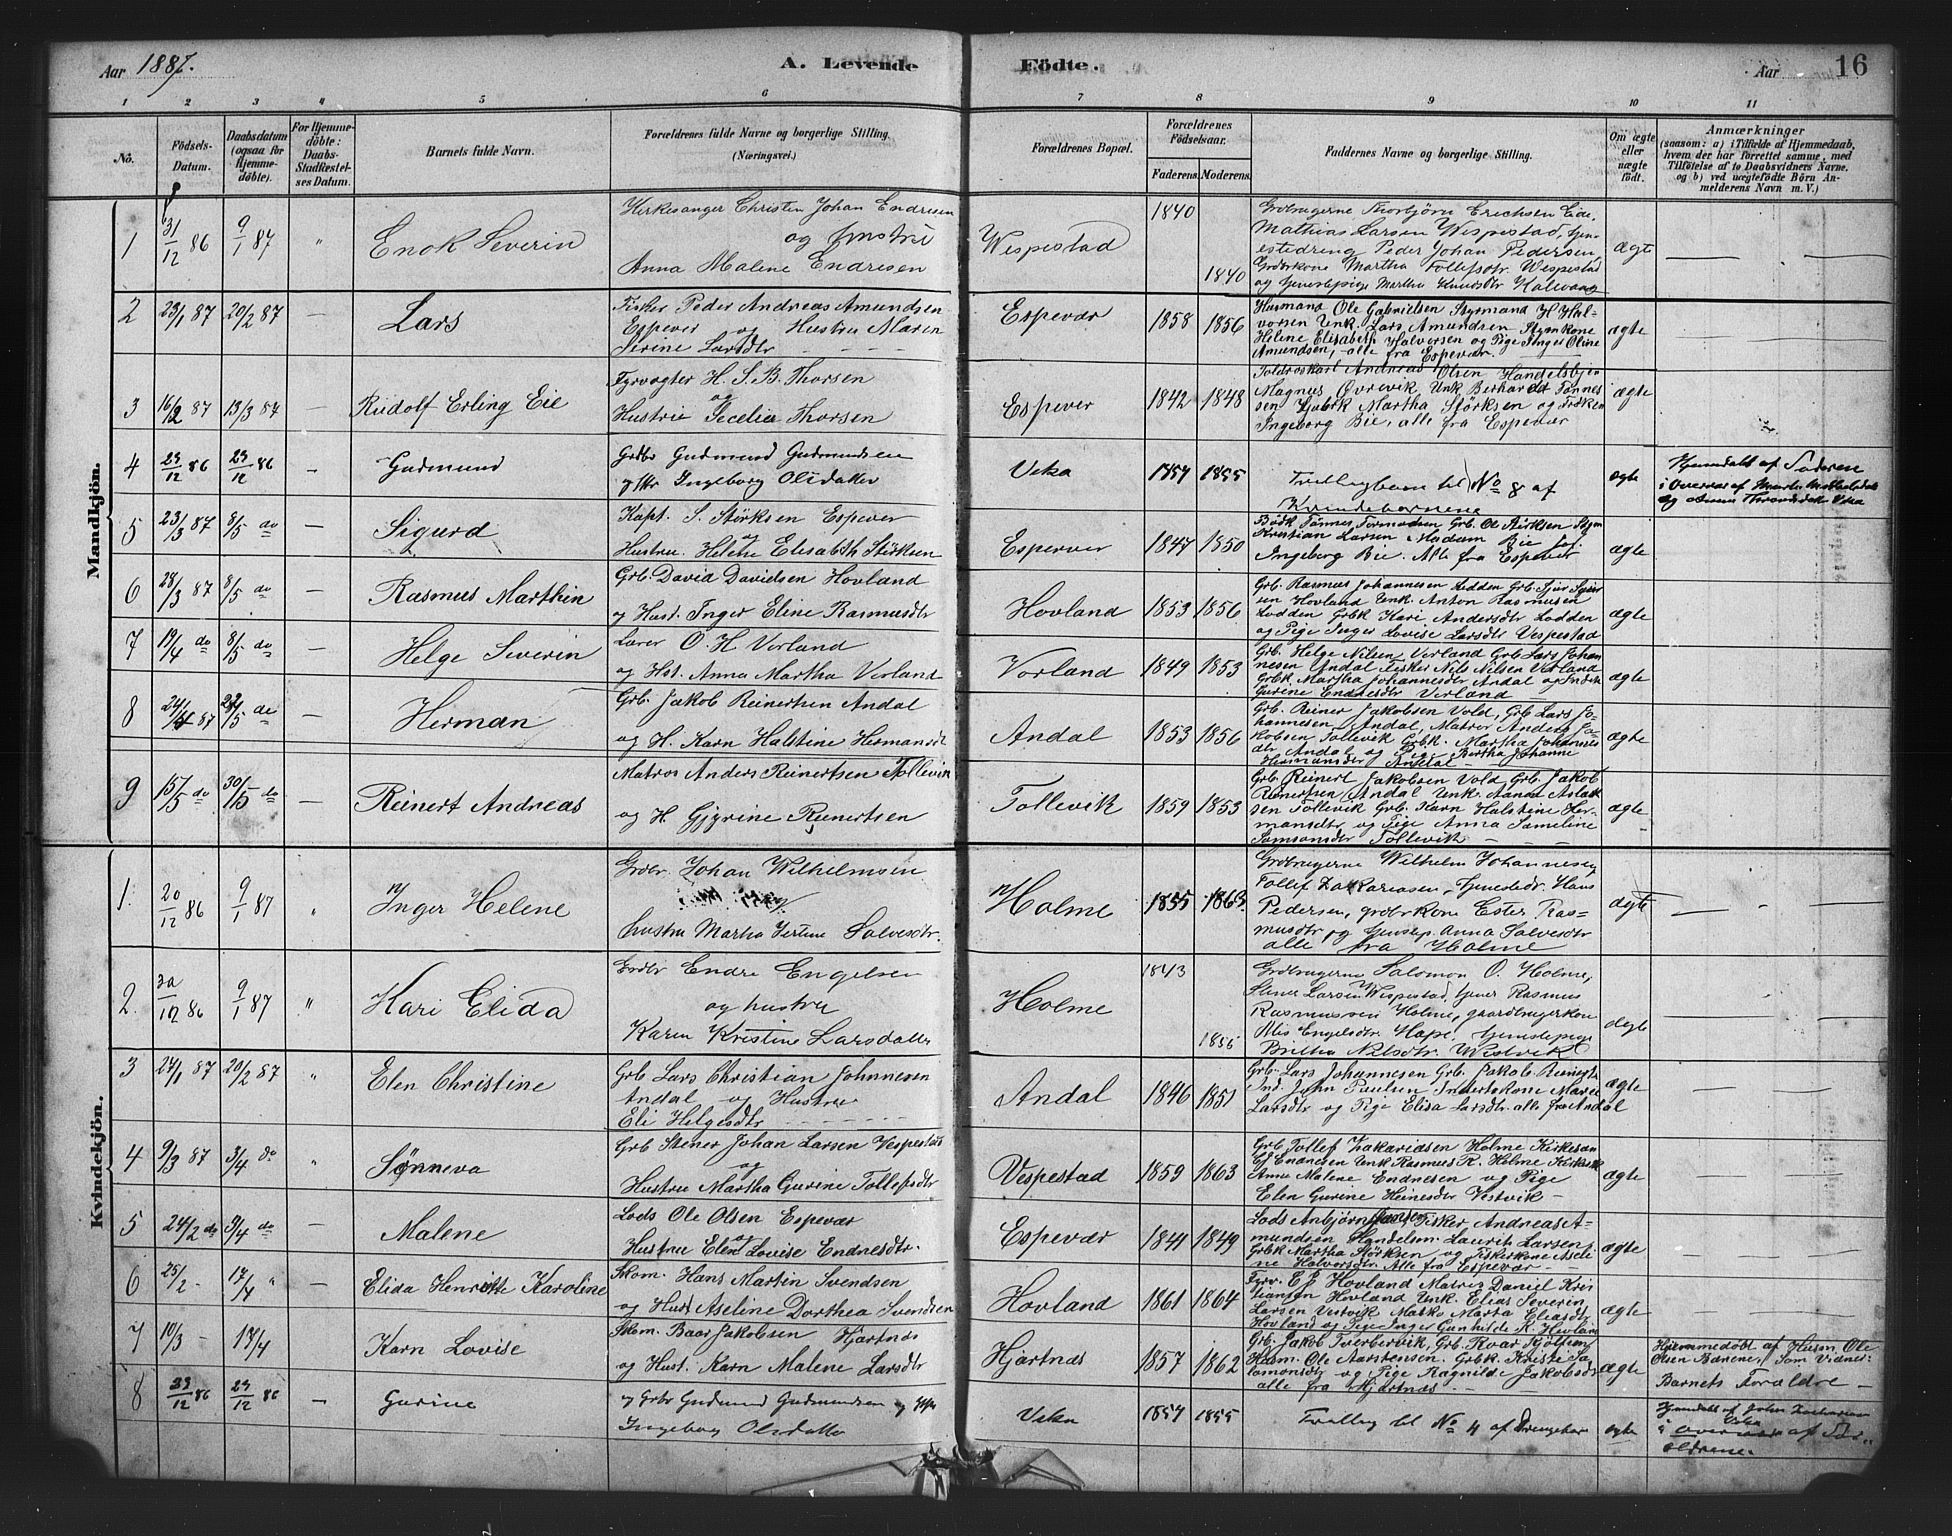 Aar 1887.
A. Levende Födte.
Aar 16
1 2 3 4 5 6 7 8 9 10 11
No.
Födsels-Datum.
Daabsdatum (ogsaa for Hjemme-döbte).
For Hjemme-döbte: Daabs-Stadfæstel-ses Datum.
Barnets fulde Navn.
Forældrenes fulde Navne og borgerlige Stilling. (Næringsvei.)
Forældrenes Bopæl.
Forældrenes Födselsaar.
Faderens. Moderens.
Faddernes Navne og borgerlige Stilling.
Om ægte eller uægte födt.
Anmærkninger
(saasom: a) i Tilfælde af Hjemmedaab,
hvem der har forrettet samme, med
Tilföielse af to Daabsvidners Navne,
og b) ved uægtefödte Börn An-
melderens Navn m. V.)
Mandkjön.
1 31/12 86 9/1 87 " Enok Severin
Kirkesanger Christen Johan Endresen
og Hustru
Anna Malene Endresen
Wespestad 1840 1840
Grdbrugerne Thorbjörn Erichsen Eide,
Mathias Larsen Wespestad, tjen-
estedreng Peder Johan Pedersen,
Grdbrkone Martha Tollefsdtr. Wespestad
og tjenestepige Martha Knudsdtr
ægte
2 23/1 87 20/2 87 — Lars
Fisker Peder Andreas Amundsen
Espevær og Hustru Maren
Serine Larsdtr
Espevær 1858 1856
Husmand Ole Gabrielsen Styrmand H Hal-
vorsen Unk. Lars Amundsen Styrmkone
Helene Elisabeth Halvorsen og Pige Inger Oline
Amundsen, alle fra Espevær.
ægte
3 16/2 87 13/3 87 — Rudolf Erling Eie
Fyrvogter H. S. B. Thorsen
og
Hustru Cecelia Thorsen
Espever 1842 1848
Andreas Olsen Handelsbetj
Magnus Øvrevik Unk Berhard Tønnes
sen Martha Störksen og Frøken
Ingeborg Bie, alle fra Espevær
ægte
4 23/12 86 23/12 86 — Gudmund
Grdbr Gudmund Gudmundsen
og Ingeborg Olsdatter
Veka 1857 1855
Tvillingbarn til No 8 af
Kvindebørnene
ægte
5 23/3 87 8/5 do — Sigurd
Kapt. S. Störksen Espever
og
Hustru Helene Elisabth Störksen
Espevær 1847 1850
Kristian Larsen Madam Bie
Ingeborg Bie. Alle fra Espever
ægte
6 28/3 87 8/5 do — Rasmus Marthin
Grb. David Davidsen Hovland
og Hust. Inger Eline Rasmusdtr
Hovland 1853 1856
Grb. Rasmus Johannesen Lodden Grb. Sjur Sjur
sen Hovland Unk. Anton Rasmusen
Lodden Grbk Kari Andersdtr Lodden
og Pige Inger Lovise Larsdtr Vespestad
ægte
7 19/4 do 8/5 do — Helge Severin
Lærer O. H Vorland
og Hst. Anna Martha Vorland
Vorland 1849 1853
Grb. Helge Nilsen Vorland Grb Lars Johan
nesen Andal Fisker Nils Nilsen Vorland
Grbk. Martha Johannesdtr Andal og
Gurine Endresdtr Vorland
ægte
8 24/4 87 22/5 do — Herman
Grb. Jakob Reinertsen Andal
og H. Karn Halstine Hermansdt
Andal 1853 1856
Grb. Reiner Jakobsen Vold, Grb Lars Jo-
hannesen Andal, Matros Anders Ja-
kobsen Tollevik Grbk. Martha Johannes
dtr Andal og Pige Bertha Johanne
Hermansdtr Andal
ægte
9 15/5 do 30/5 do — Reinert Andreas
Matros Anders Reinertsen Tollevik
og H. Gjyrine Reinertsen
Tollevik 1859 1853
Grb. Reinert Jakobsen Vold Grb. Jakob
Reinertsen Andal Unk. Anders Aslak
sen Tollevik Grb. Karn Halstine Her-
mansdtr og Pige Anna Tomeline
Samsonsdtr Tollevik
ægte
Kvindekjön.
1. 20/12 86 9/1 87 " Inger Helene
Grdbr. Johan Wilhelmsen
hustru Martha Sertine Salvesdtr.
Holme 1855 1863.
Grdbrugerne Wilhelm Johannesen
Tollef Zakariasen, tjenestedr. Hans
Pedersen, grdbrkone Ester Ras-
musdtr, og tjenstep. Anna Salvesdtr
alle fra Holme
ægte
2. 30/12 86 9/1 87 " Kari Elida
Grdbr Endre Engelsen
og hustru
Karen Kristine Larsdatter
Holme 1843 1855
Grdbrugerne Salomon O. Holme,
Stener Larsen Wespestad, tjener Rasmus
Rasmussen Holme, gaardbrugerkone
Engelsdtr. Hope, tjenestepige
Britha Nilsdtr. Westvik
ægte
3 24/1 87 20/2 87 " Elen Christine
Grb Lars Christian Johnnesen
Andal og Hustru
Eli Helgesdtr
Andal 1846 1851
Grb. Lars Johannesen Grb. Jakob Reinerts
Ind. John Paulsen Inderstekone Mari
Larsdtr og Pige Elisa Larsdtr. alle fra Andal
ægte
4 9/3 87 3/4 do " Sønneva
Grb Stener Johan Larsen Vespestad
og
Hustru Martha Gurine Tollefsdtr
Vespestad 1859 1863
Grb Tollef Zakariasen Holme Kirkesan
Endresen Unk Rasmus R. Holme
Anne Malene Endresen og Pige
Elen Gurine Heinesdtr Vestvik
ægte
5 24/2 do 3/4 do — Malene
Lods Ole Olsen Espevær
og
Hustru Elen Lovise Endresdtr.
Espevær 1841 1849
Lods Anbjørn Hansen Fisker Andreas A-
mundsen Handelsm. Laurits Larsen,
Grbk Martha Störksen og Fiskerkone Aseli-
ne Halvorsdtr. Alle fra Espevær
ægte
6 25/2 - 17/4 " — Elida Henriette Karoline
Skom. Hans Martin Svendsen
og Hust Aseline Dorthea Svendsen
Hovland 1861 1864
Hovland Matros Daniel Kris
tiansen Hovland Unk. Elias Severin
Larsen Vestvik Marta Eliasdt
Hovland og Pige Inger Gunhilde K. Hovland
ægte
7 10/3 - 17/4 — Karn Lovise
Skom. Baar Jakobsen Hjartnæs
og Hust. Karn Malene Larsdtr
Hjartnæs 1857 1862
Grb. Jakob Tverborvik, Grb. Roar Kjölsen
Husm. Ole Aarstensen. Grbk. Kriste Sa
lomonsdtr og Pige Ragnilde Jakobsdtr
alle fra Hjartnæs
ægte
Hjemmedöbt af Husm Ole
Olsen Børene, Som Vidner:
Barnets Forældre
8 23/12 86 23/12 86 — Gurine
Grbr Gudmund Gudmundsen og
Ingeborg Olsdatter
Veka 1857 1855
Tvilling til No 4 af Drengebør
ægte
Hjemdøbt af John Zachariasen
Veka
i overvær af For-
ældrene.